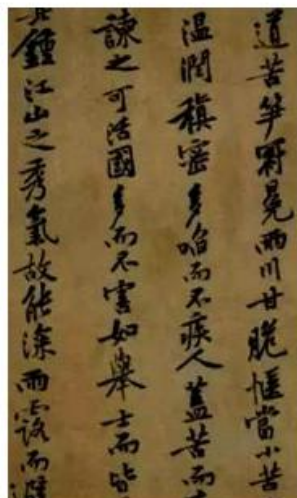 道苦笋冠冕两川甘脆惬当小苦
温润稹密多啗而不疾人盖苦而
谏之可活國多而不害如舉士而皆
鍾江山之秀氣故能深雨露而避